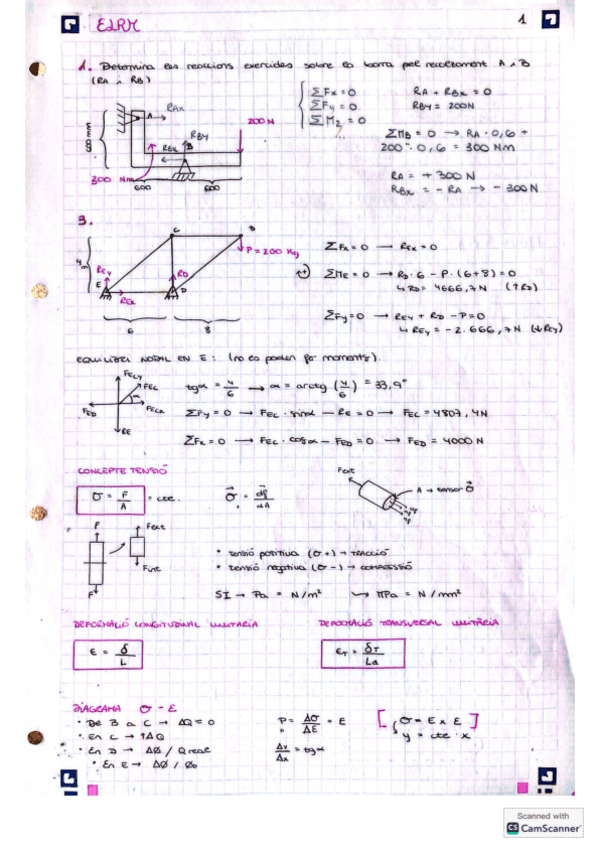 ELRM
1
1. Determina les reaccions exercides sobre la barra pel recolzament A i B
(RA i RB)
ΣFx = 0
ΣFy = 0
ΣMz = 0
RA + RBx = 0
RBY = 200N
ΣMB = 0 → RA · 0,6 +
200 · 0,6 = 300 Nm
RA = + 300 N
RBx = - RA → - 300 N
A
RAx
RBY
RBx
B
200 N
300 Nm
600
600
9.
C
B
P = 200 Kg
4 m
REY
E
REx
RD
D
6
8
ΣFx = 0 → REx = 0
ΣME = 0 → RD · 6 - P · (6+8) = 0
↳ RD = 4666,7N (↑RD)
ΣFy = 0 → REY + RD - P = 0
↳ REY = - 2.666,7N (↓REY)
EQUILIBRI NODAL EN E: (no es poden fer moments).
FECY
FEC
α
FECx
FED
RE
tgα = 4/6 → α = arctg (4/6) = 33,9°
ΣFy = 0 → FEC · sinα - RE = 0 → FEC = 4807,4N
ΣFx = 0 → FEC · cosα - FED = 0 → FED = 4000 N
CONCEPTE TENSIÓ
σ = F/A = cte.
σ = df/dA
Fext
A → tensor σ
F
Fext
Fint
F
• tensió positiva (σ+) → TRACCIÓ
• tensió negativa (σ-) → COMPRESSIÓ
SI → Pa = N/m²
MPa = N/mm²
DEFORMACIÓ LONGITUDINAL UNITÀRIA
DEFORMACIÓ TRANSVERSAL UNITÀRIA
ε = δ/L
εT = δT/La
DIAGRAMA σ - ε
• De B a C → ΔQ = 0
• En C → ↑ΔQ
• En D → ΔØ / Q real
• En E → ΔØ / Øo
P = Δσ/Δε = E
Δy/Δx = tgα
σ = E x ε
y = cte · x
Scanned with
CS CamScanner